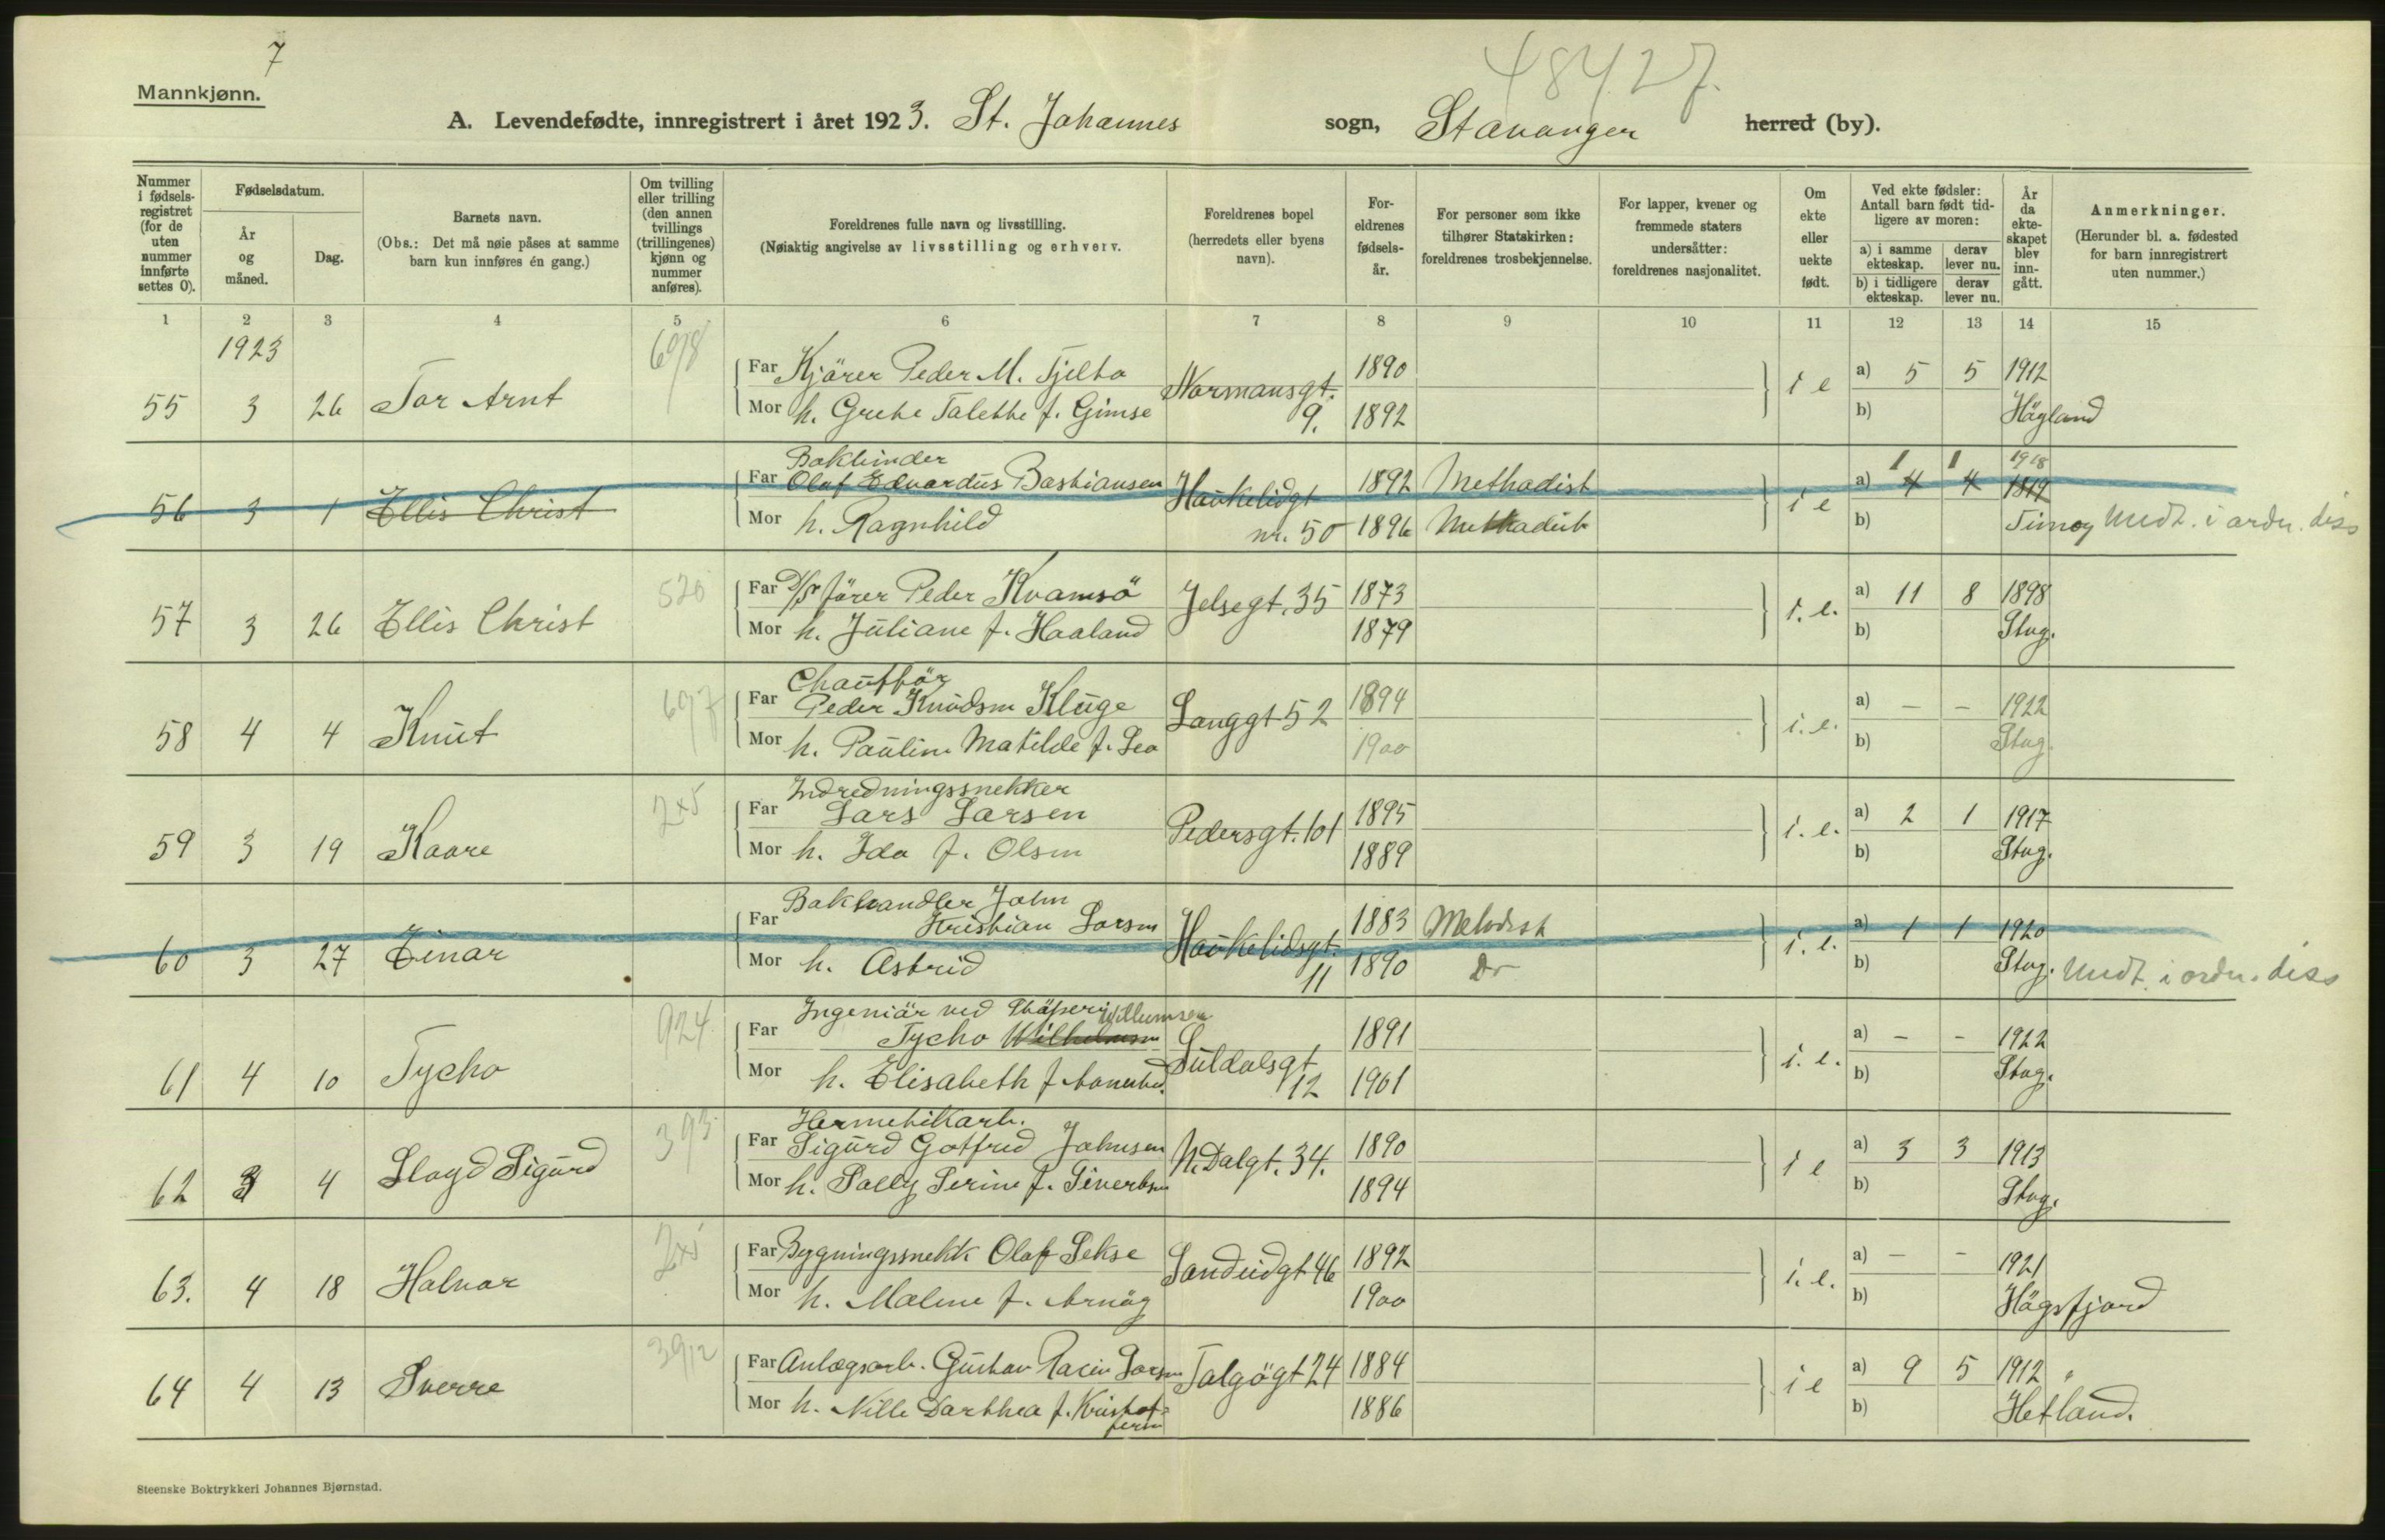 7
48427.
Mannkjønn.
A. Levendefødte, innregistrert i året 1923. St. Johannes sogn, Stavanger herred (by).
Nummer i fødsels-registret (for de uten nummer innførte settes 0).
Fødselsdatum.
År og måned.
Dag.
Barnets navn.
(Obs.: Det må nøie påses at samme barn kun innføres én gang.)
Om tvilling eller trilling (den annen tvillings (trillingenes) kjønn og nummer anføres).
Foreldrenes fulle navn og livsstilling.
(Nøiaktig angivelse av livsstilling og erhverv.
Foreldrenes bopel (herredets eller byens navn).
For-eldrenes fødsels-år.
For personer som ikke tilhører Statskirken: foreldrenes trosbekjennelse.
For lapper, kvener og fremmede staters undersåtter: foreldrenes nasjonalitet.
Om ekte eller uekte født.
Ved ekte fødsler: Antall barn født tid-ligere av moren:
a) i samme ekteskap. derav lever nu.
b) i tidligere ekteskap. derav lever nu.
År da ekte-skapet blev inn-gått.
Anmerkninger.
(Herunder bl. a. fødested for barn innregistrert uten nummer.)
1 2 3 4 5 6 7 8 9 10 11 12 13 14 15
1923
698
Far Kjörer Peder M. Tjelta 1890 a) 5 5 1912
55 3 26 Tor Arnt Normansgt. 9. i e
Mor h. Grethe Talette f. Gimse 1892 b) Högland
Bokbinder 1 1 1918
Far Olaf Edvardus Bastiansen 1892 Methodist a) 4 4 1919
56 3 1 Ellis Christ Haukelidgt nr. 50 i e
Mor h. Ragnhild 1896 Methodist b) Timoy Medt. i ordn. diss
520
Far D/S förer Peder Kvamsö 1873 a) 11 8 1898
57 3 26 Ellis Christ Jelsegt. 35 i. e.
Mor h. Juliane f. Haaland 1879 b) Stvg.
Chaufför
697
Far Peder Knudsen Kluge 1894 a) - - 1922
58 4 4 Knut Langgt 52 i. e.
Mor h. Pauline Matilde f. Lea 1900 b) Stvg.
Indredningssnekker
2x5
Far Lars Larsen 1895 a) 2 1 1917
59 3 19 Kaare Pedersgt. 101 i. e.
Mor h. Ida f. Olsen 1889 b) Stvg.
Bokhandler John
Far Kristian Larsen 1883 Metodist a) 1 1 1920
60 3 27 Einar Haukelidsgt. 11 i. e.
Mor h. Astrid 1890 Do b) Stvg. Medt. i ordn. diss
Ingeniör ved Willumsen
924
Far Tycho Wilhelmsen 1891 a) - - 1922
61 4 10 Tycho Suldalsgt 12 i. e.
Mor h. Elisabeth f. 1901 b) Stvg.
Hermetikkarb.
393
Far Sigurd Gotfred Johnsen 1890 a) 3 3 1913
62 3 4 Lloyd Sigurd N. Dalgt. 34. i e
Mor h. Solly Serine f. Sivertsen 1894 b) Stvg.
2x5
Far Bygningssnekk Olaf Sekse 1892 a) - - 1921
63. 4 18 Halvar Sandeidgt 46 i. e.
Mor h. Malene f. Arnög 1900 b) Högsfjord
3912
Far Anlægsarb. Gustav Larsen 1884 a) 9 5 1912 "
64 4 13 Sverre Talgögt 24 i e
Mor h. Nille Dorthea f. Kristof-fersen 1886 b) Hetland.
Steenske Boktrykkeri Johannes Bjørnstad.